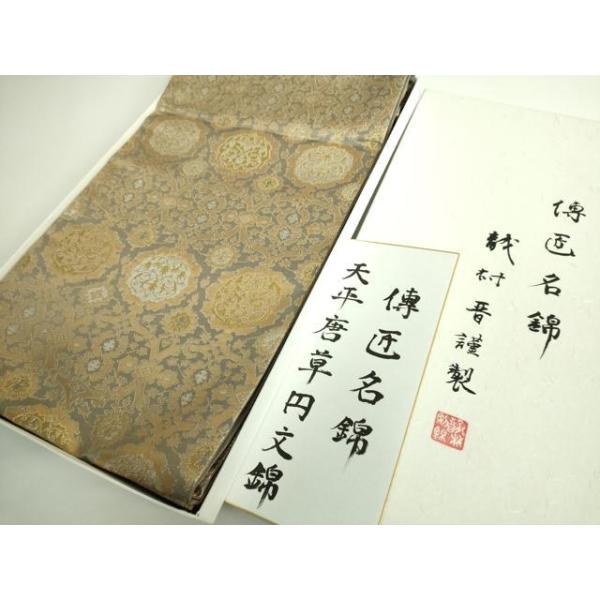 傳匠名錦
龍村晋謹製
傳匠名錦
天平唐草円文錦